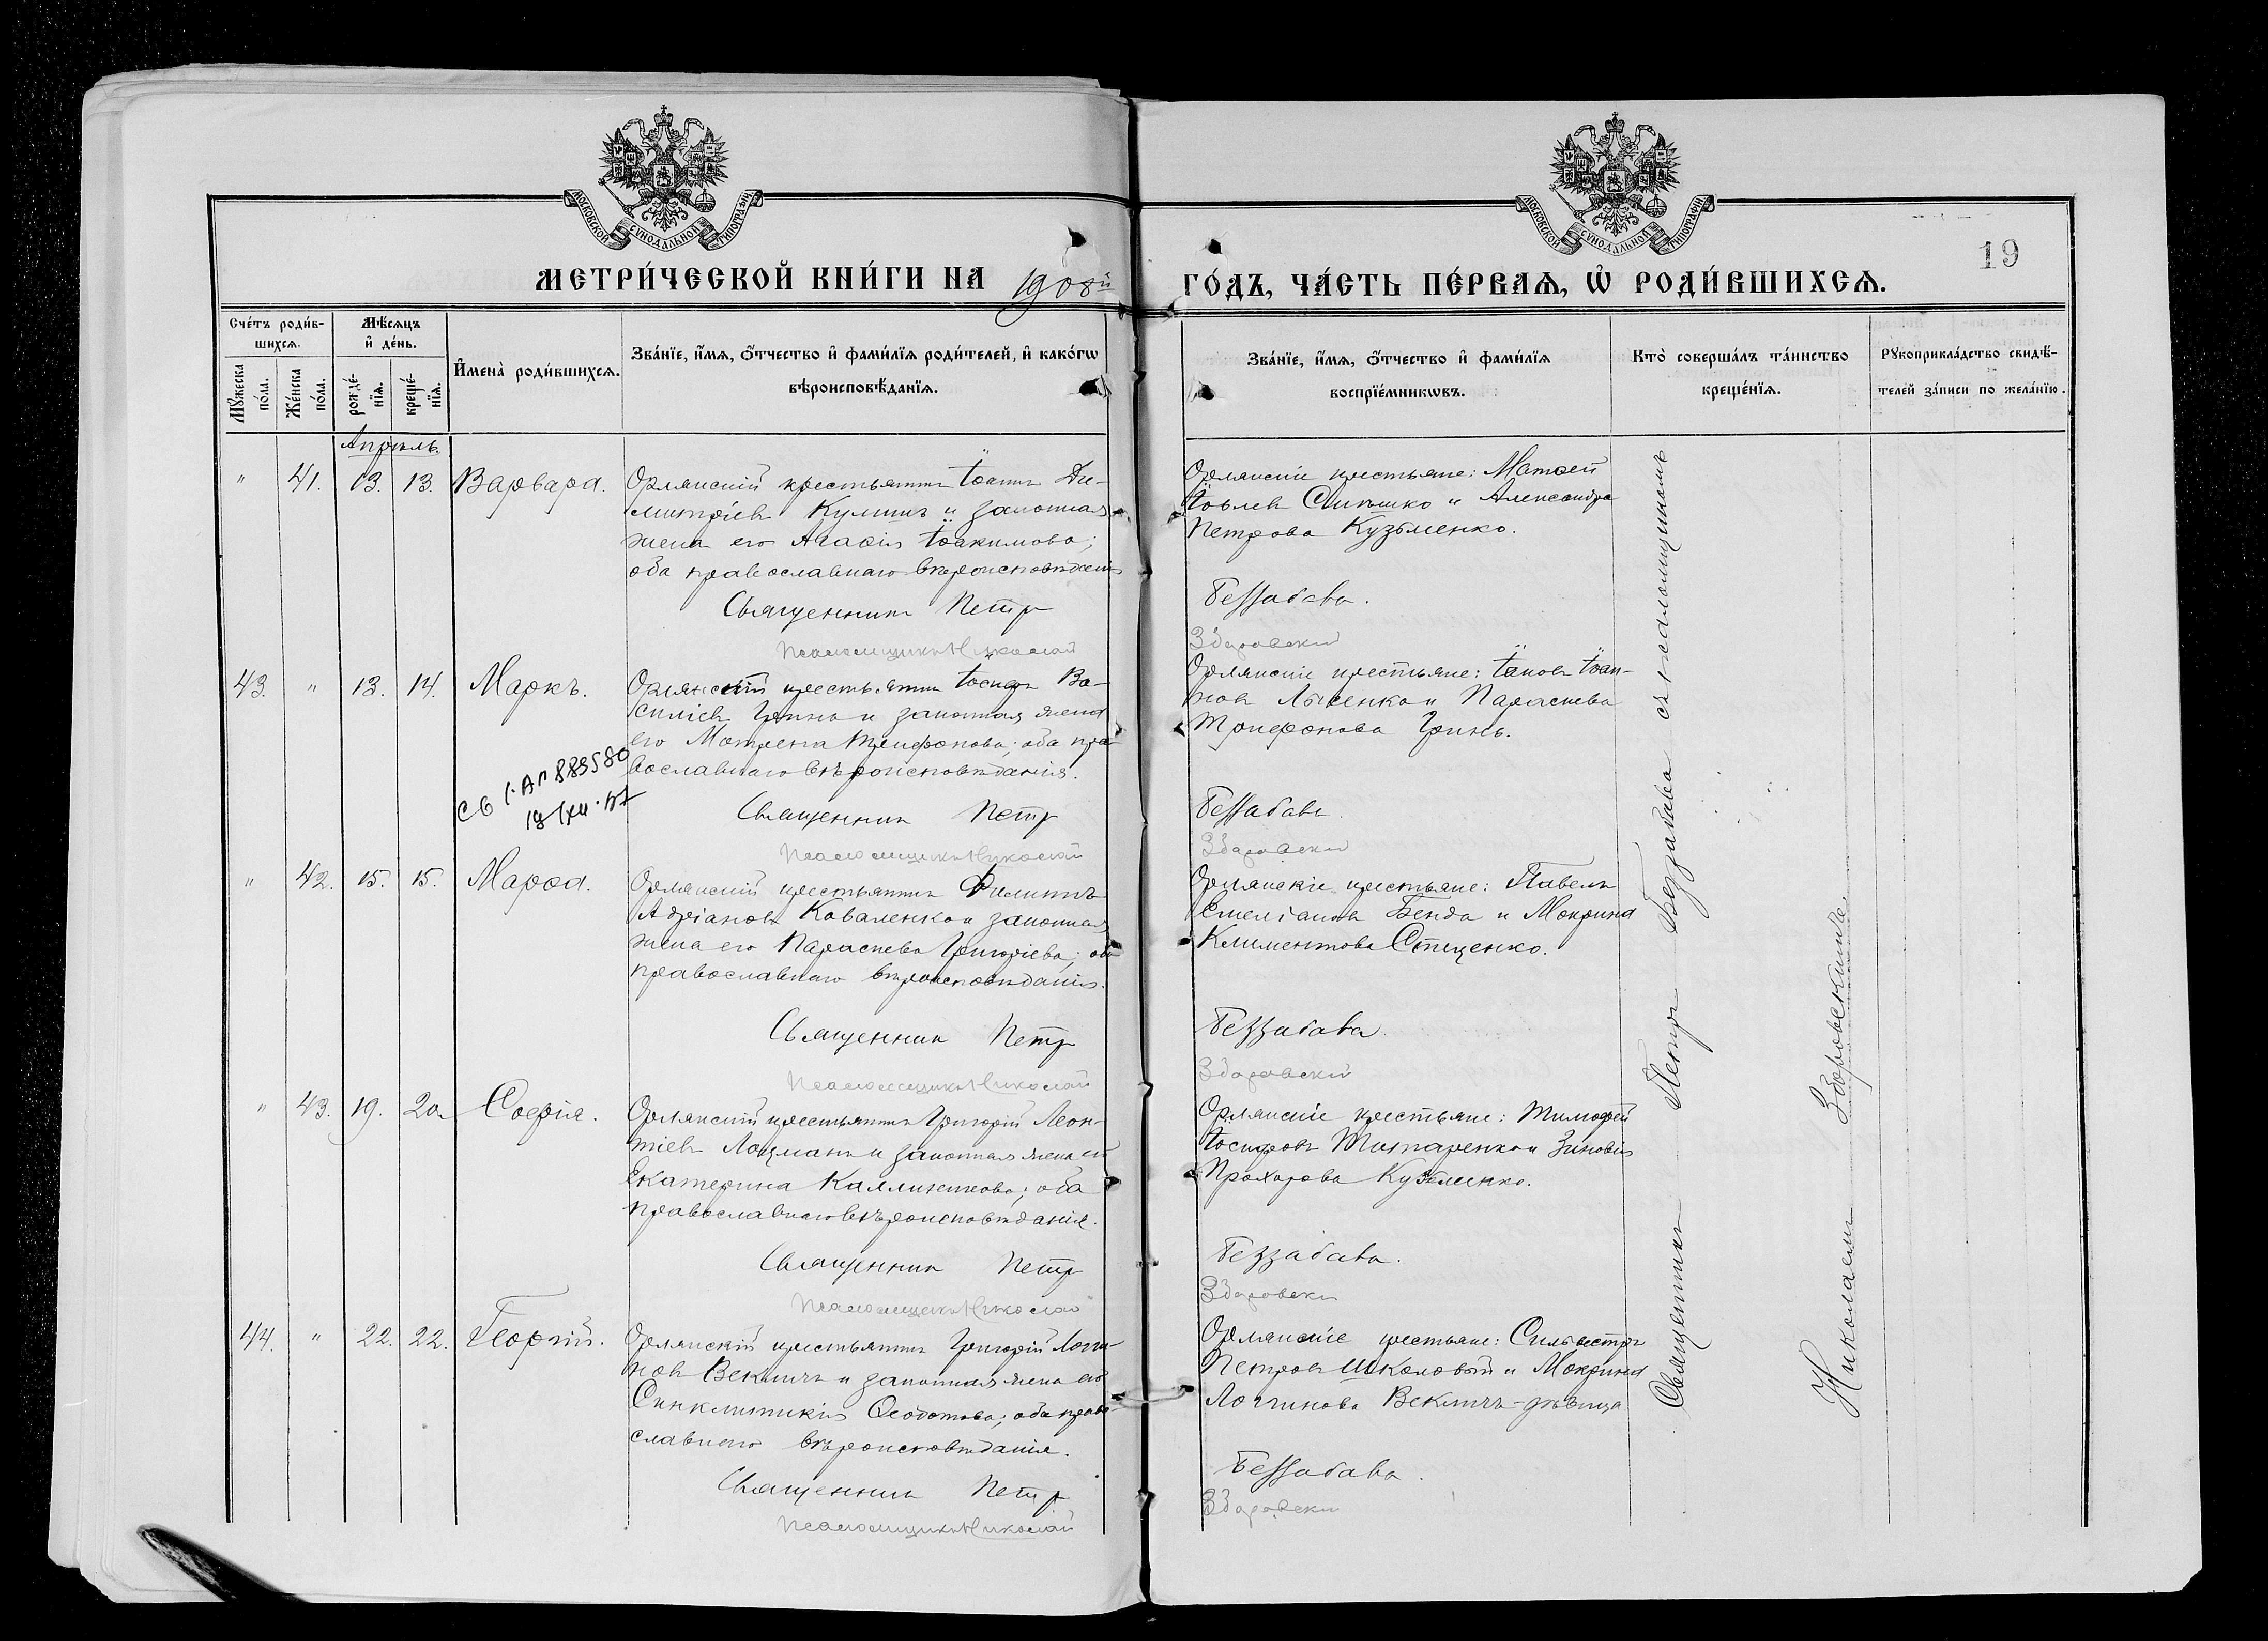 МОСКОВСКОЙ СѴНОДАЛЬНОЙ ТИПОГРАФІИ
МОСКОВСКОЙ СѴНОДАЛЬНОЙ ТИПОГРАФІИ
19
МЕТРИ́ЧЕСКОЙ КНИ́ГИ НА 1908й ГО́ДЪ, ЧА́СТЬ ПЕ́РВАѦ, Ѡ҆ РОДИ́ВШИХСѦ.
Сче́тъ роди́в-
шихсѧ.
Мꙋ́жеска по́ла.
Же́нска по́ла.
Мѣ́сѧцъ
и҆ де́нь.
рожде́-
нїѧ.
креще́-
нїѧ.
И҆мена̀ роди́вшихсѧ.
Зва́нїе, и҆́мѧ, ѻ҆́тчество и҆ фами́лїѧ роди́телей, и҆ како́гѡ
вѣроисповѣ́данїѧ.
Зва́нїе, и҆́мѧ, ѻ҆́тчество и҆ фами́лїѧ
воспрїе́мникѡвъ.
Кто̀ соверша́лъ та́инство
креще́нїѧ.
Рꙋкоприкла́дство свидѣ́-
телей за́писи по жела́нїю.
Апрѣль.
" 41. 13. 13. Варвара.
Орлянскій крестьянинъ Іоаннъ Ди-
митріевъ Кулишъ и законная
жена его Агафія Іоакимова;
оба православнаго вѣроисповѣданія
Священникъ Петръ
Псаломщикъ Николай
Орлянскіе крестьяне: Матѳей
Іовлевъ Синѣшко и Александра
Петрова Кузьменко.
Беззабава.
Здоровскій
43. " 13. 14. Маркъ.
Орлянскій крестьянинъ Іосифъ Ва-
силіевъ Гринь и законная жена
его Матрена Трифонова; оба пра-
вославнаго вѣроисповѣданія.
Священникъ Петръ
Псаломщикъ Николай
Орлянскіе крестьяне: Іаковъ Іоан-
новъ Лысенко и Параскева
Трифонова Гринь.
Беззабава
Здоровскій
" 42. 15. 15. Марѳа.
Орлянскій крестьянинъ Филиппъ
Адріановъ Коваленко и законная
жена его Параскева Григоріева; оба
православнаго вѣроисповѣданія.
Священникъ Петръ
Псаломщикъ Николай
Орлянскіе крестьяне: Павелъ
Емеліановъ Бенда и Мокрина
Климентова Стеценко.
Беззабава.
Здоровскій
" 43. 19. 20. Софія.
Орлянскій крестьянинъ Григорій Леон-
тіевъ Лоцманъ и законная жена его
Екатерина Каллиникова; оба
православнаго вѣроисповѣданія.
Священникъ Петръ
Псаломщикъ Николай
Орлянскіе крестьяне: Тимофей
Іосифовъ Титаренко и Зиновія
Прохорова Кузьменко.
Беззабава.
Здоровскій
44. " 22. 22. Георгій.
Орлянскій крестьянинъ Григорій Логи-
новъ Векличъ и законная жена его
Синклитикія Ѳеодотова; оба право-
славнаго вѣроисповѣданія.
Священникъ Петръ
Псаломщикъ Николай
Орлянскіе крестьяне: Сильвестръ
Петровъ Школовый и Мокрина
Логгинова Векличъ-дѣвица
Беззабава.
Здоровскій
Священникъ Петръ Беззабава съ псаломщикомъ
Николаемъ Здоровскимъ.